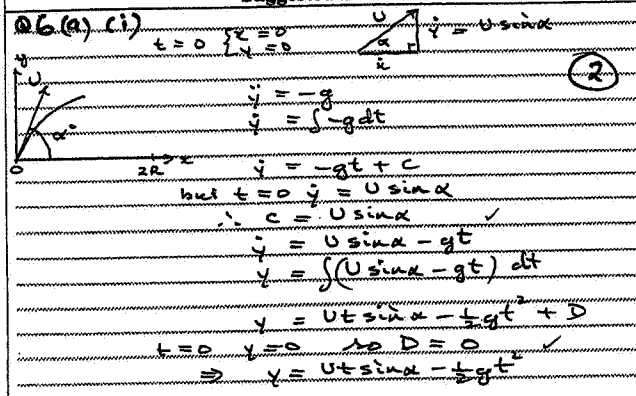 Q6(a) (i)
t = 0 { x = 0
y = 0
U
α
ẋ
ẏ = U sin α
2
y
U
α°
0
2R
x
ÿ = -g
ẏ = ∫ -g dt
ẏ = -gt + c
but t = 0 ẏ = U sin α
∴ c = U sin α ✓
ẏ = U sin α - gt
y = ∫ (U sin α - gt) dt
y = Ut sin α - ½gt² + D
t = 0 y = 0 so D = 0 ✓
⇒ y = Ut sin α - ½gt²